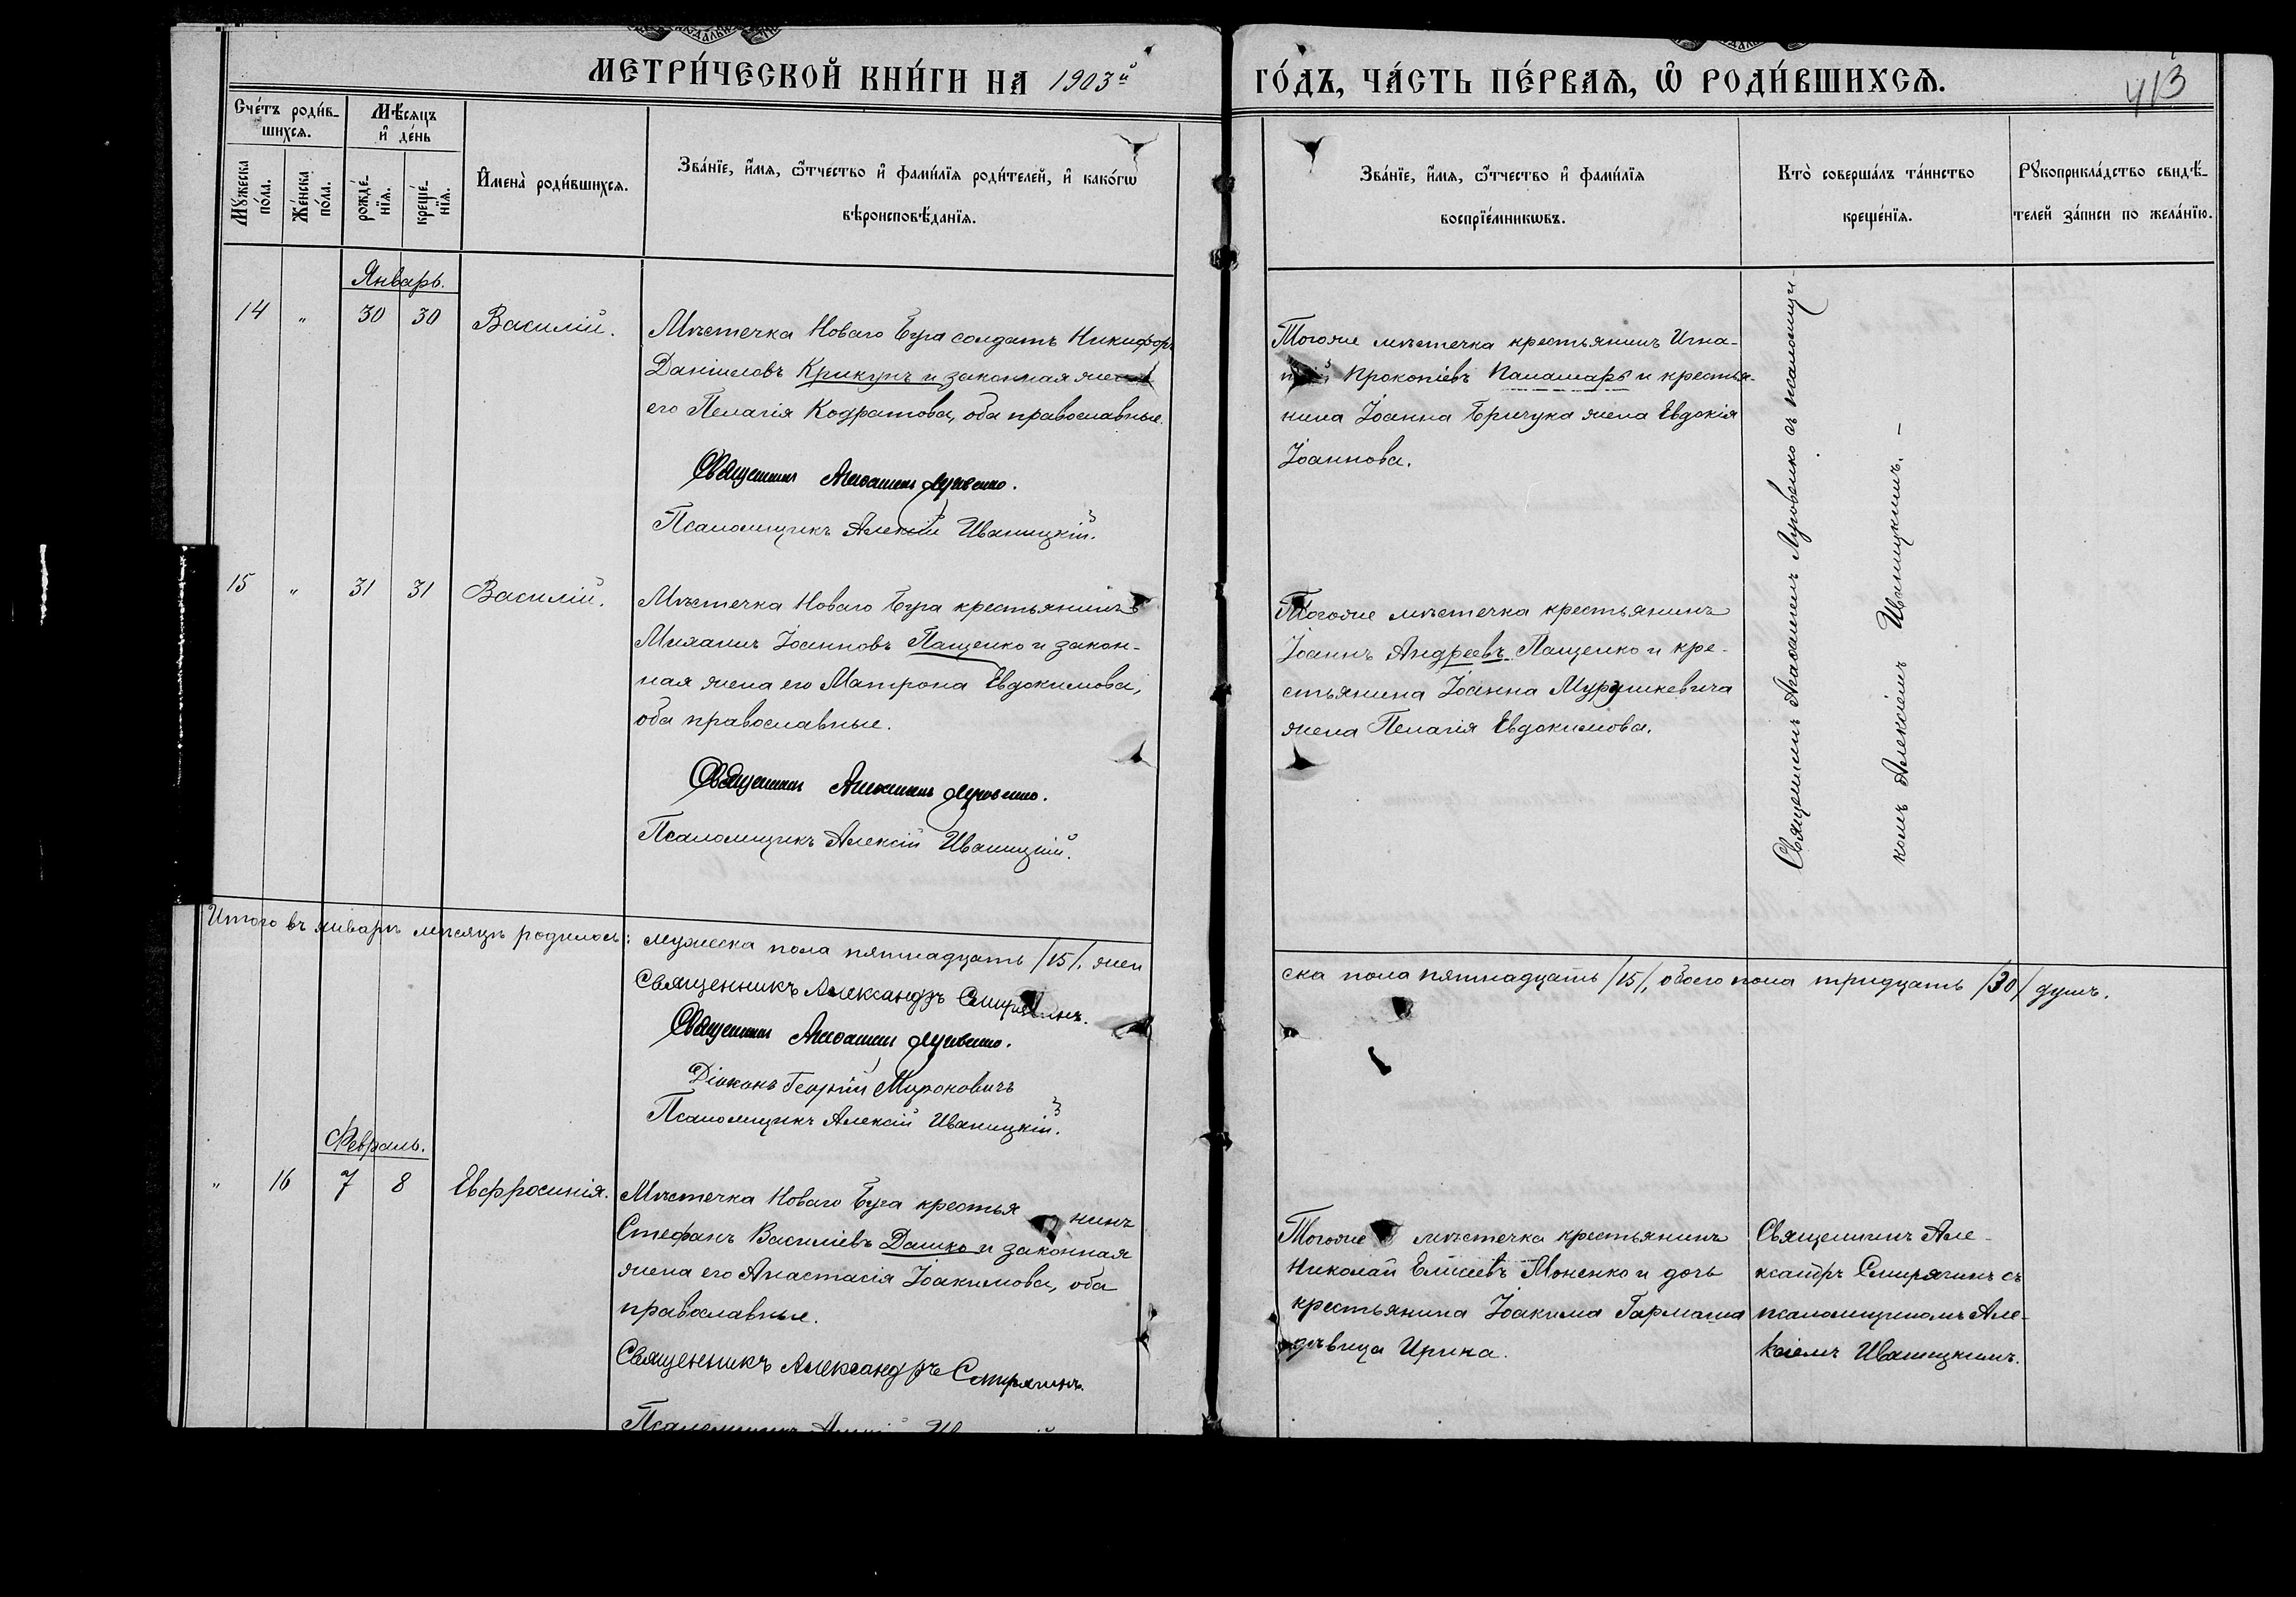 МЕТРИ́ЧЕСКОЙ КНИ́ГИ НА 1903й
ГО́ДЪ, ЧА́СТЬ ПЕ́РВАѦ, Ѿ РОДИ́ВШИХСѦ.
413
Сче́тъ роди́в-
шихсѧ.
Мѣ́сѧцъ
и҆ де́нь
Мꙋжеска
по́ла.
Же́нска
по́ла.
рожде́-
нїѧ.
креще́-
нїѧ.
И҆мена̀ роди́вшихсѧ.
Зва́нїе, и҆́мѧ, ѻ҆́тчество и҆ фами́лїѧ роди́телей, и҆ како́гѡ
вѣроисповѣ́данїѧ.
Зва́нїе, и҆́мѧ, ѻ҆́тчество и҆ фами́лїѧ
воспрїе́мникѡвъ.
Кто̀ соверша́лъ та́инство
креще́нїѧ.
Рꙋкоприкла́дство свидѣ́-
телей за́писи по жела́нїю.
Январь.
14 " 30 30 Василій.
Мѣстечка Новаго Буга солдатъ Никифоръ
Даніиловъ Крикунъ и законная жена
его Пелагія Кодратова, оба православные.
Священникъ Агаѳангелъ Луговенко.
Псаломщикъ Алексій Иваницкій.
Тогоже мѣстечка крестьянинъ Игна-
тій Прокопіевъ Паламарь и крестья-
нина Іоанна Бричука жена Евдокія
Іоаннова.
Священникъ Агаѳангелъ Луговенко съ псаломщи-
комъ Алексіемъ Иваницкимъ. —
15 " 31 31 Василій.
Мѣстечка Новаго Буга крестьянинъ
Михаилъ Іоанновъ Пащенко и закон-
ная жена его Матрона Евдокимова,
оба православные.
Священникъ Агаѳангелъ Луговенко.
Псаломщикъ Алексій Иваницкій.
Тогоже мѣстечка крестьянинъ
Іоаннъ Андреевъ Пащенко и кре-
стьянина Іоанна Мурушкевича
жена Пелагія Евдокимова.
Итого въ январѣ мѣсяцѣ родилось: мужеска пола пятнадцать /15/, жен
ска пола пятнадцать /15/, обоего пола тридцать /30/ душъ.
Священникъ Александръ Смирягинъ.
Священникъ Агаѳангелъ Луговенко.
Діаконъ Георгій Мироновичъ
Псаломщикъ Алексій Иваницкій.
Февраль.
" 16 7 8 Евфросинія.
Мѣстечка Новаго Буга крестьянинъ
Стефанъ Василіевъ Дашко и законная
жена его Анастасія Іоакимова, оба
православные.
Священникъ Александръ Смирягинъ.
Псаломщикъ
Тогоже мѣстечка крестьянинъ
Николай Елисеевъ Моненко и дочь
крестьянина Іоакима Гармаша
дѣвица Ирина.
Священникъ Але-
ксандръ Смирягинъ съ
псаломщикомъ Але-
ксіемъ Иваницкимъ.